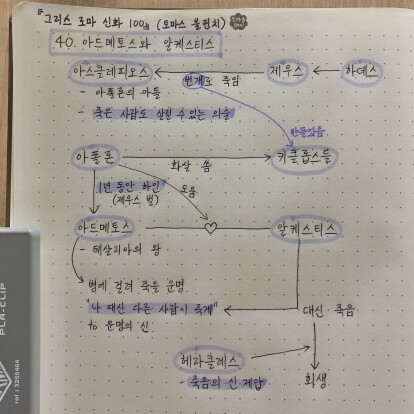 『그리스 로마 신화 100』 (토마스 불핀치)
40. 아드메토스와 알케스티스
아스클레피오스 번개로 죽임 제우스 하데스
- 아폴론의 아들
- 죽은 사람도 살릴 수 있는 의술
만들었음
아폴론 화살 쏨 키클롭스들
1년 동안 하인 도움
(제우스 벌)
아드메토스 ♡ 알케스티스
- 테살리아의 왕
병에 걸려 죽을 운명
"나 대신 다른 사람이 죽게" 대신 죽음
to 운명의 신
헤라클레스
- 죽음의 신 제압 회생
PLA-CLIP
ref : 3255404